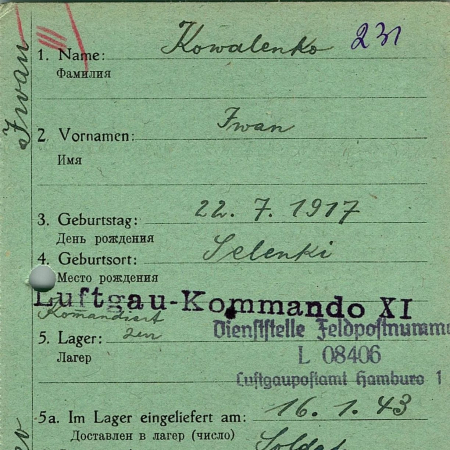 Iwan
1. Name: Kowalenko 231
Фамилия
2. Vornamen: Iwan
Имя
3. Geburtstag: 22. 7. 1917
День рождения
4. Geburtsort: Selenki
Место рождения
Luftgau-Kommando XI
Dienststelle Feldpostnumm
5. Lager:
Лагер
L 08406
Luftgaupostamt Hamburg 1
5a. Im Lager eingeliefert am: 16. 1. 43
Доставлен в лагер (число)
Soldat